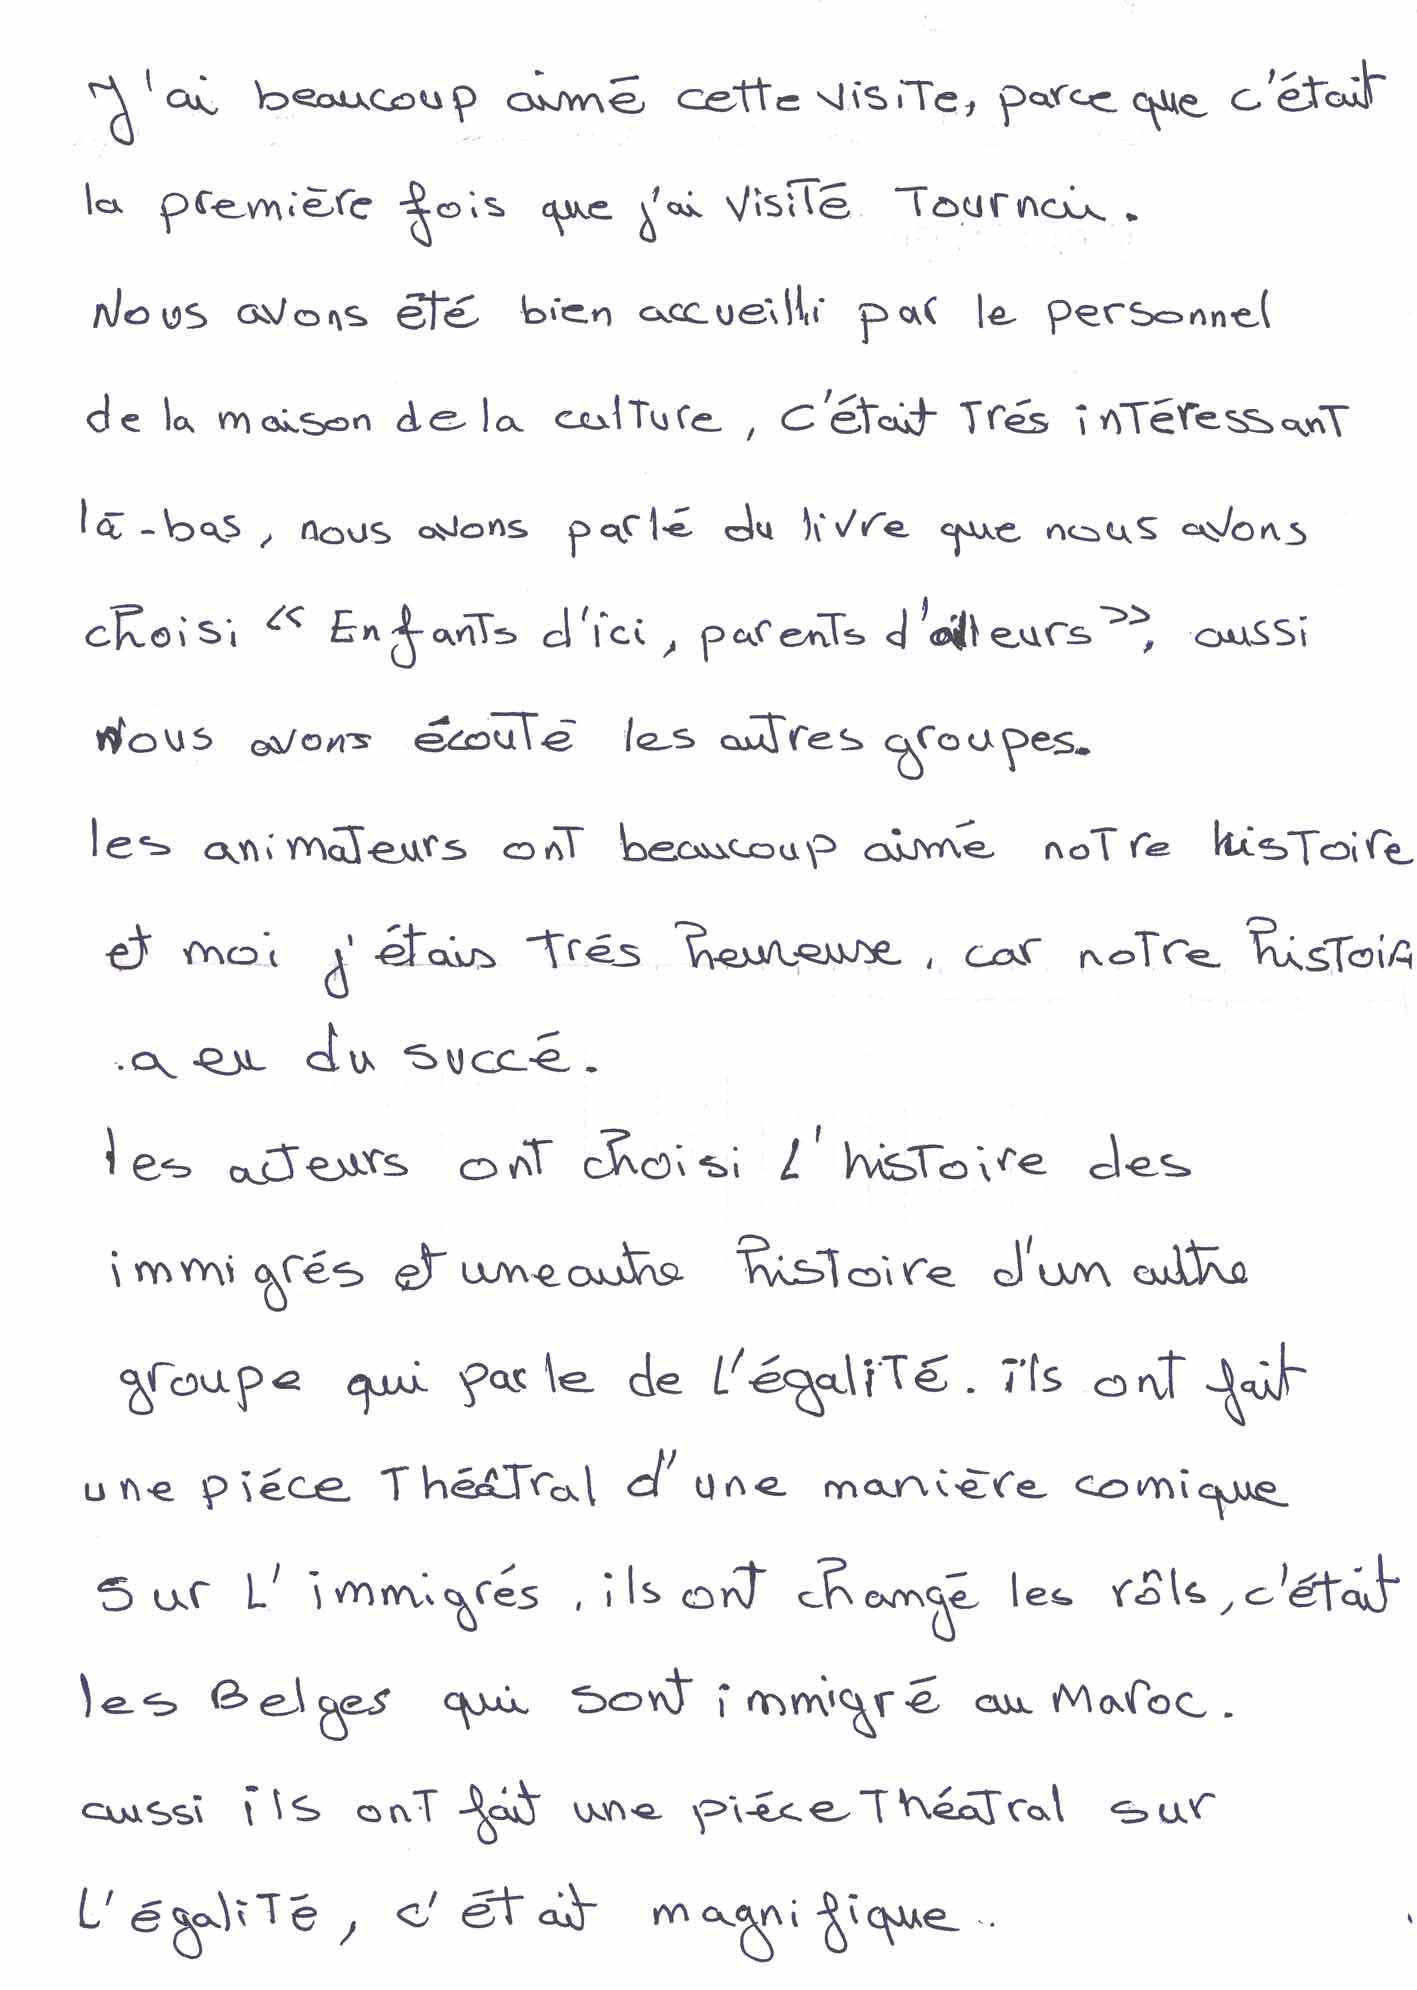 J'ai beaucoup aimé cette visite, parce que c'était
la première fois que j'ai visité Tournai.
Nous avons été bien accueilli par le personnel
de la maison de la culture, c'était trés intéressant
là-bas, nous avons parlé du livre que nous avons
choisi « Enfants d'ici, parents d'ailleurs », aussi
Nous avons écouté les autres groupes.
les animateurs ont beaucoup aimé notre histoire
et moi j'étais trés heureuse, car notre histoir
a eu du succé.
les acteurs ont choisi L'histoire des
immigrés et une autre histoire d'un autre
groupe qui parle de L'égalité. ils ont fait
une piéce théâtral d'une manière comique
sur L'immigrés, ils ont changé les rôls, c'était
les Belges qui sont immigré au Maroc.
aussi ils ont fait une piéce théatral sur
L'égalité, c'était magnifique..